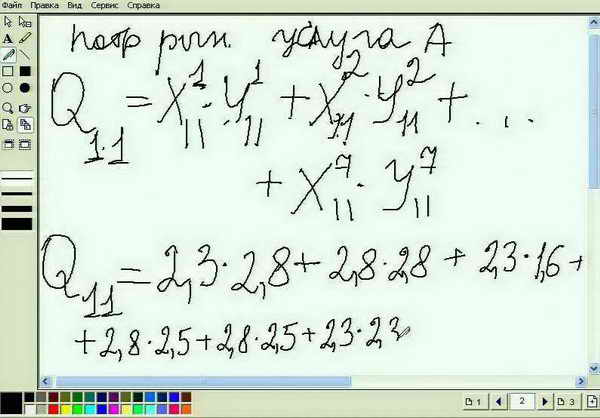 Файл Правка Вид Сервис Справка
потр рын. услуга А
Q₁.₁ = X¹₁₁ · Y¹₁₁ + X²₁₁ · Y²₁₁ + ...
+ X⁷₁₁ · Y⁷₁₁
Q₁₁ = 2,3 · 2,8 + 2,8 · 2,8 + 2,3 · 1,6 +
+ 2,8 · 2,5 + 2,8 · 2,5 + 2,3 · 2,3
1 2 3